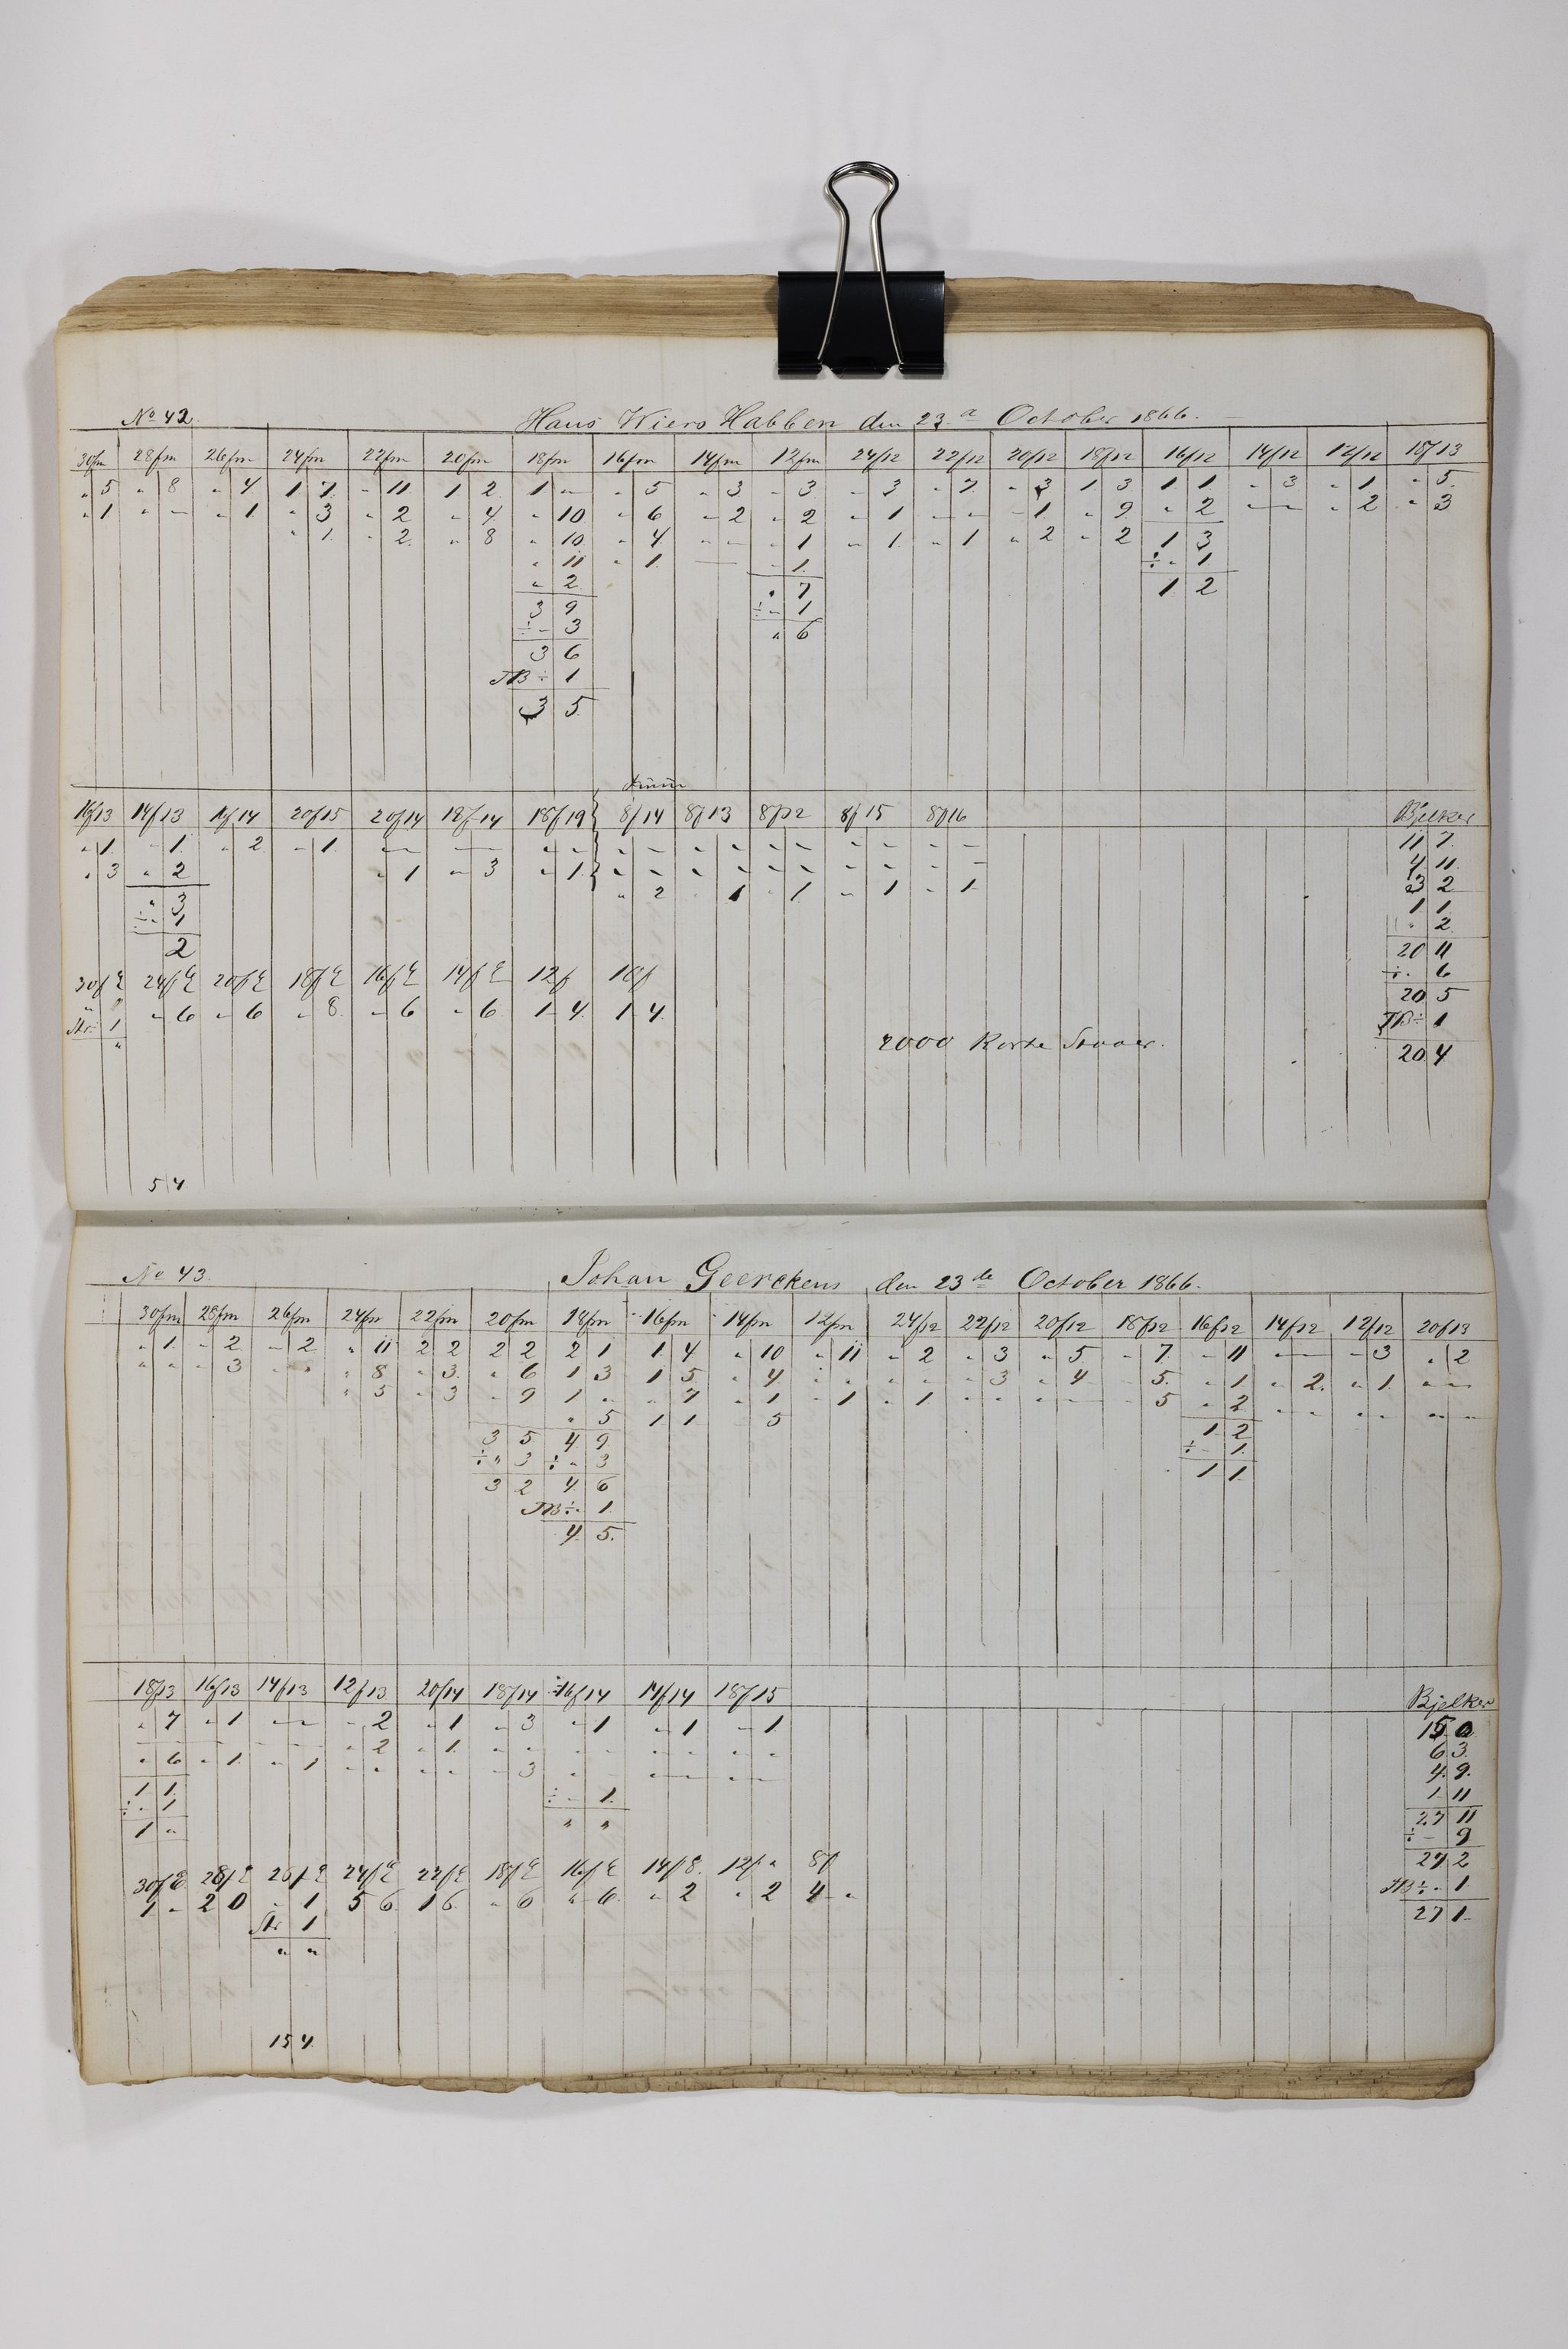 No 42. Hans Wiers Habben den 23.d October 1866.
30fm 28fm 26fm 24fm 22fm 20fm 18fm 16fm 14fm 12fm 24f12 22f12 20f12 18f12 16f12 14f12 12f12 18f13
" 5 " 8 " 4 1 7 - 11 1 2 1 - " 5 " 3 - 3 - 3 " 7 " 3 1 3 1 1 " 3 " 1 " 5
" 1 " - " 1 " 3 " 2 " 4 " 10 " 6 - 2 " 2 " 1 - - - 1 " 9 " 2 - - " 2 " 3
" 1 " 2 " 8 " 10 " 4 - - " 1 " 1 " 1 " 2 " 2 1 3
" 11 " 1 - - 1 ÷ " 1
" 2 " 7 1 2
3 9 ÷ - 1
÷ - 3 " 6
3 6
JB ÷ 1
3 5
16f13 14f13 14f14 20f15 20f14 18f14 18f19 8f14 8f13 8f12 8f15 8f16 Bjelker
" 1 - 1 " 2 - 1 - - - - " - " - " - " - " - " - 11 7
" 3 " 2 " 1 " 3 " 1 " - " - " - " - " - 4 11
" 3 " 2 " 1 " 1 " 1 " 1 3 2
÷ " 1 1 1
2 " 2
20 11
30f E 24f E 20f E 18f E 16f E 14f E 12f 10f ÷ " 6
" " " 6 " 6 " 8 " 6 " 6 1 4 1 4 20 5
1 JB ÷ 1
" 2000 Korte 20 4
5 4
No 43. Johan Geerckens, den 23de October 1866.
30fm 28fm 26fm 24fm 22fm 20fm 18fm 16fm 14fm 12fm 24f12 22f12 20f12 18f12 16f12 14f12 12f12 20f13
" 1 - 2 - 2 " 11 2 2 2 2 2 1 1 4 " 10 " 11 " 2 " 3 " 5 - 7 - 11 - - - 3 " 2
" " " 3 - " " 8 " 3 " 6 1 3 1 5 " 4 " " " " " 3 " 4 - 5 " 1 " 2 " 1 " -
" 5 " 3 " 9 1 " " 7 " 1 - 1 " 1 " " " - - 5 " 2 " " " " " "
" 5 1 1 - 5 1 2
3 5 4 9 ÷ - 1
÷ " 3 ÷ " 3 1 1
3 2 4 6
JB ÷ 1
4 5
18f13 16f13 14f13 12f13 20f14 18f14 16f14 14f14 18f15 Bjelker
" 7 " 1 - - - 2 " 1 " 3 " 1 " 1 - 1 15 0
- - - - - - " 2 " 1 " " " " " " " " 6 3
" 6 " 1 " 1 " " " " - 3 " " - - - - 4 9
1 1 ÷ - 1 1 11
÷ " 1 " " 27 11
1 " ÷ - 9
30f E 28f E 26f E 24f E 22f E 18f E 16f E 14f E 12f " 8f 27 2
1 " 2 0 " 1 5 6 1 6 " 6 " 6 " 2 " 2 4 " JB ÷ " 1
1 27 1
" "
15 4